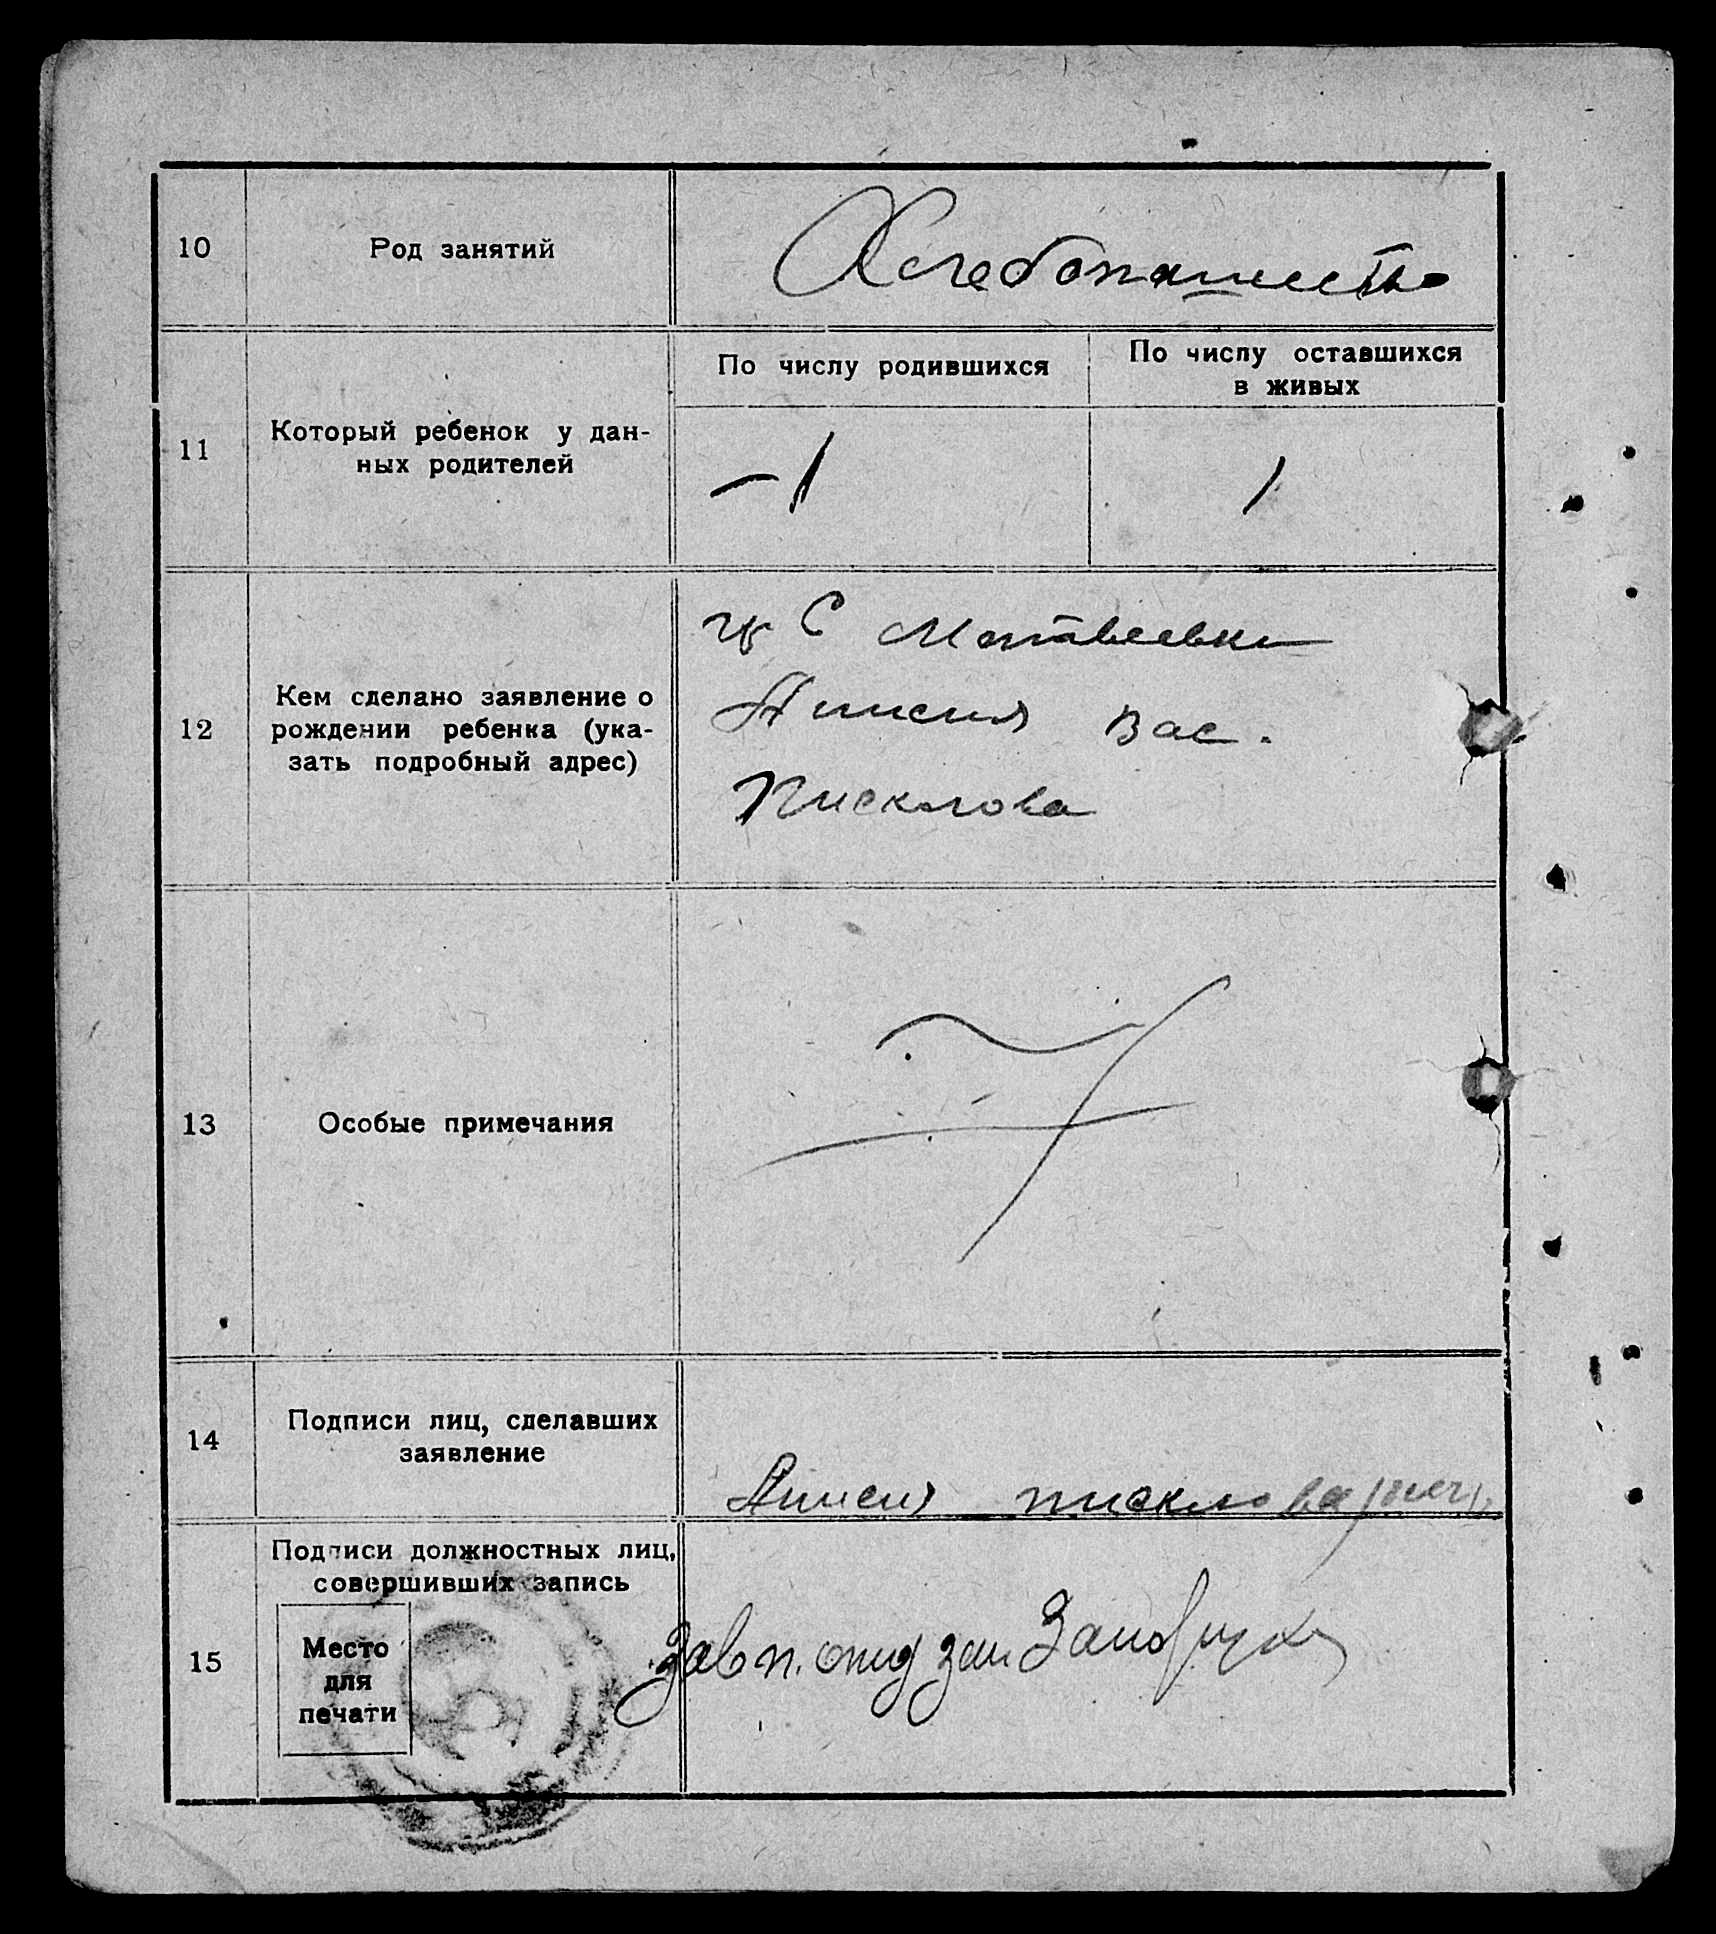 10
Род занятий
Хлебопашество
11
Который ребенок у дан-
ных родителей
По числу родившихся
По числу оставшихся
в живых
-1
1
12
Кем сделано заявление о
рождении ребенка (ука-
зать подробный адрес)
гр С Матвеевки
Анисия Вас.
Писклова
13
Особые примечания
14
Подписи лиц, сделавших
заявление
Анисия писклова
15
Подписи должностных лиц,
совершивших запись
Место
для
печати
Зав п. отд